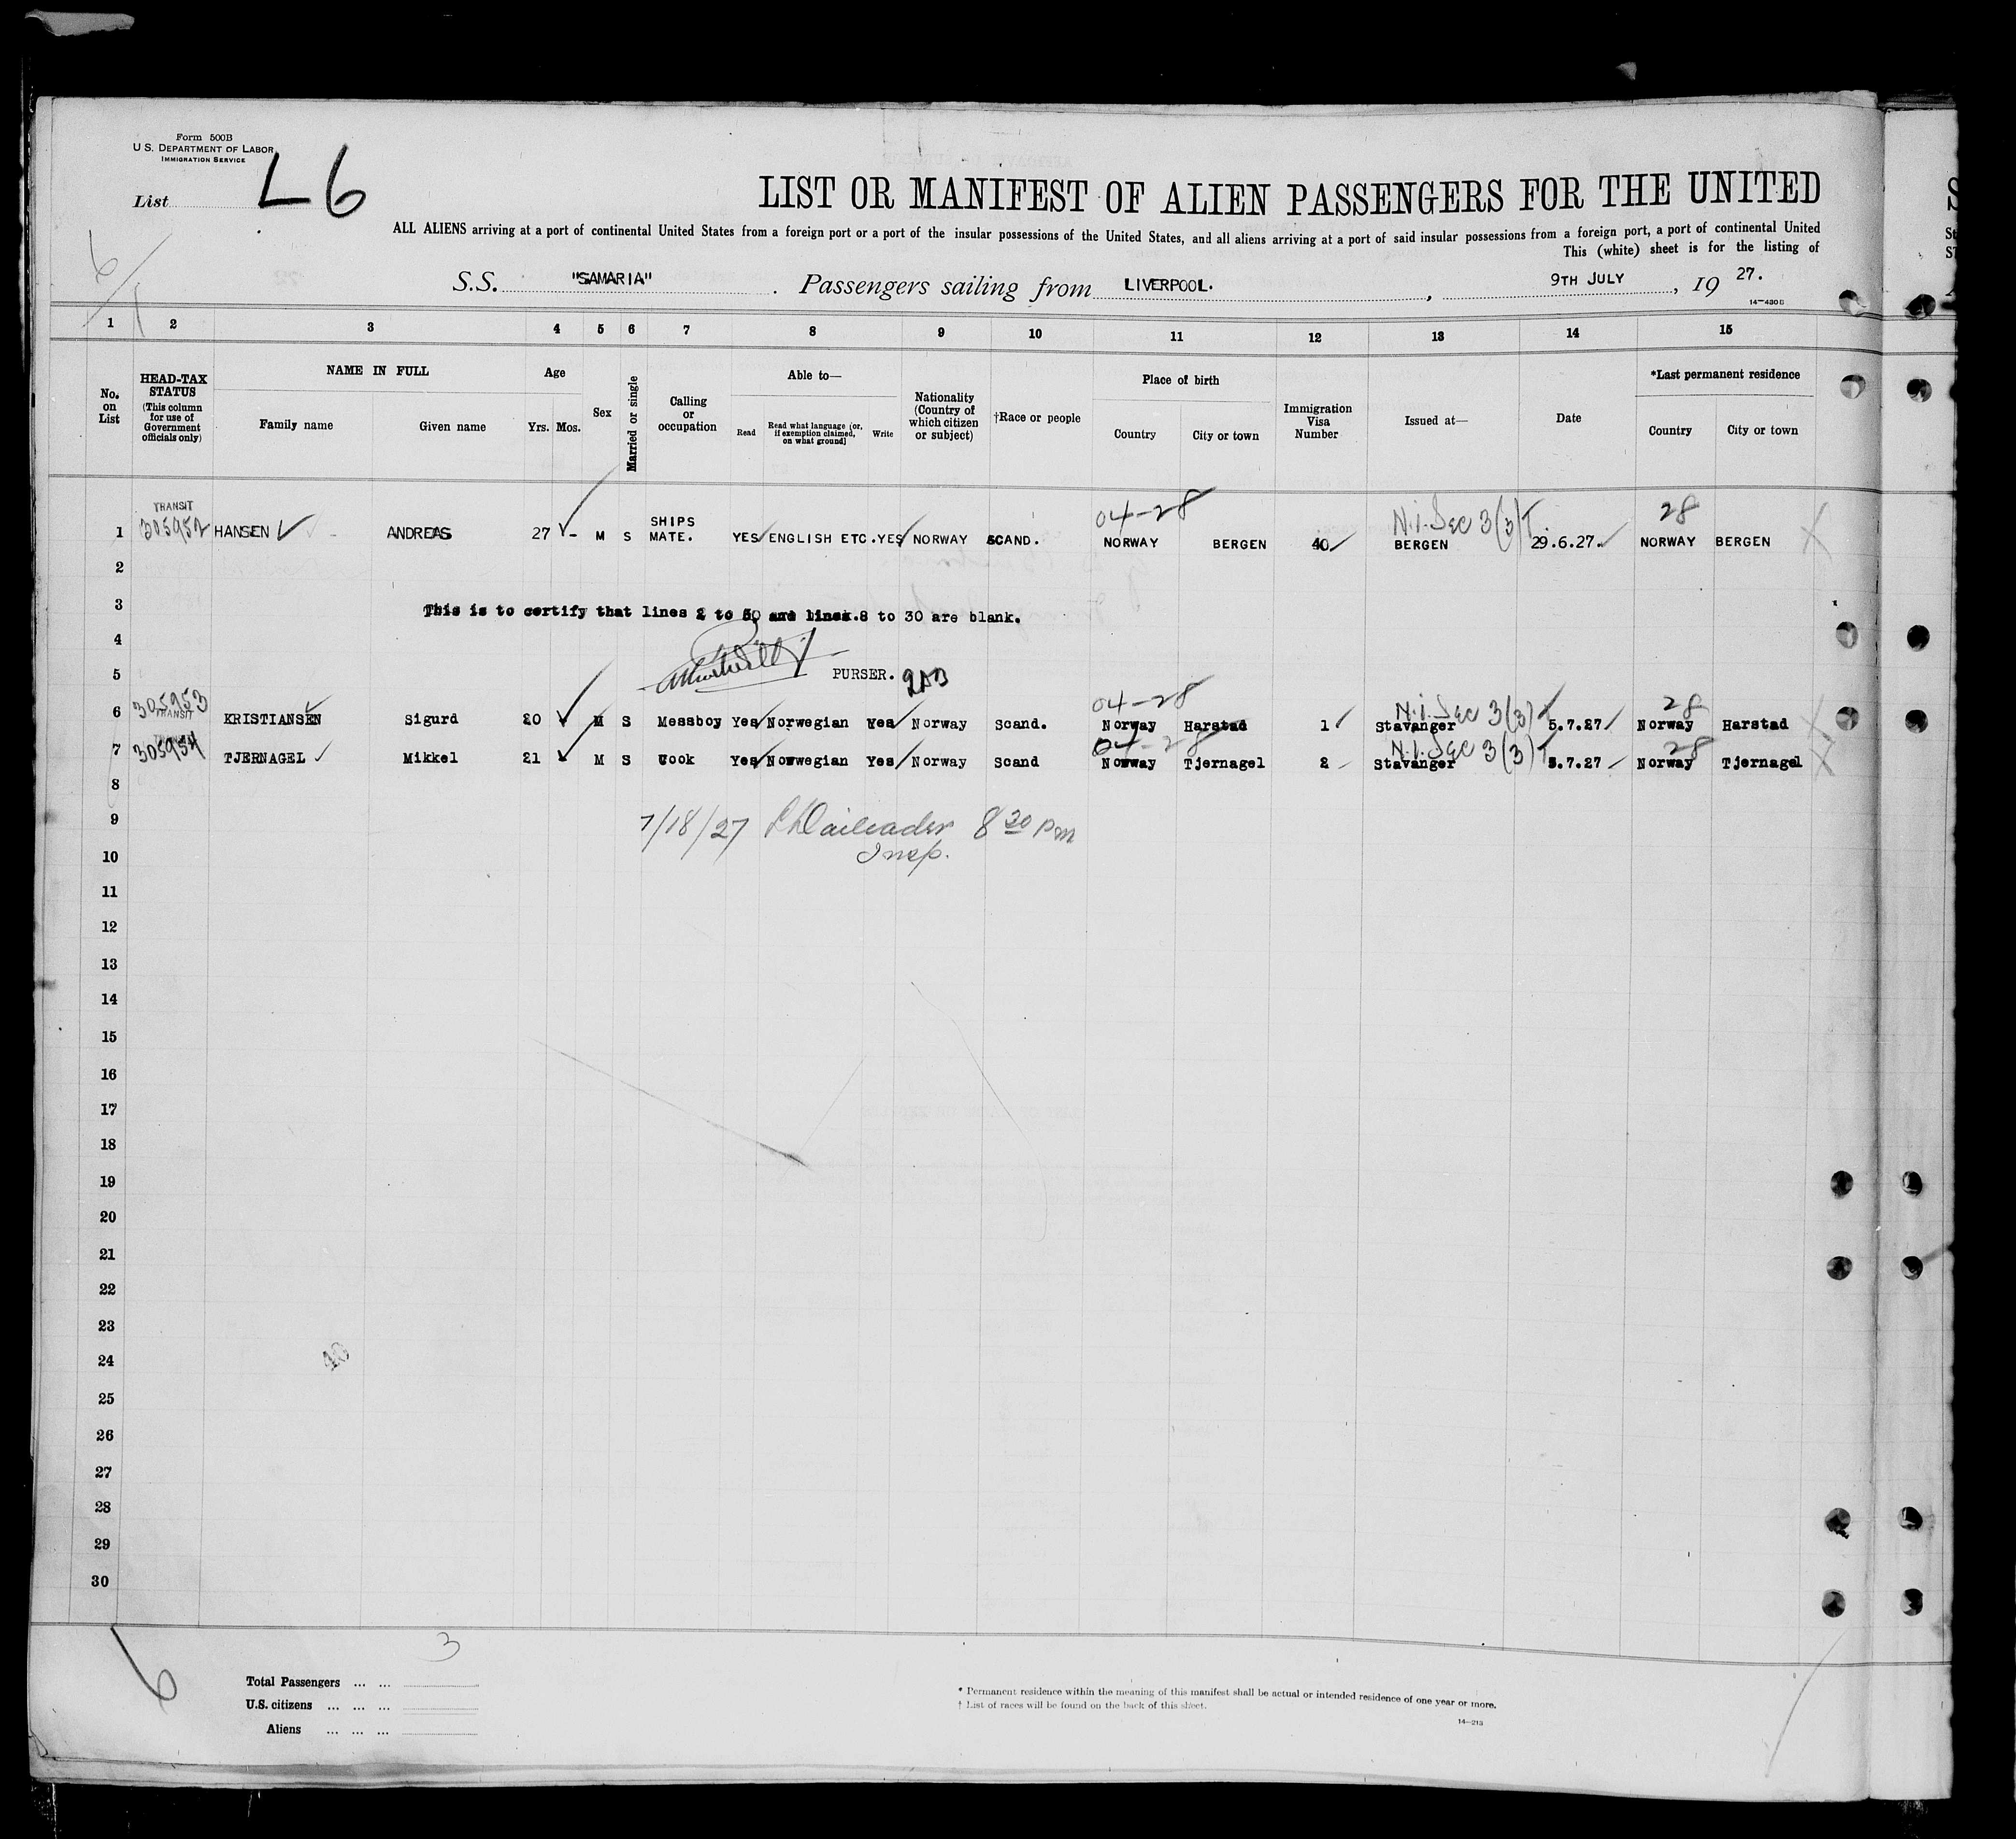 Form 500B
U.S. DEPARTMENT OF LABOR
IMMIGRATION SERVICE
List L6
LIST OR MANIFEST OF ALIEN PASSENGERS FOR THE UNITED
ALL ALIENS arriving at a port of continental United States from a foreign port or a port of the insular possessions of the United States, and all aliens arriving at a port of said insular possessions from a foreign port, a port of continental United
This (white) sheet is for the listing of
S.S. "SAMARIA" . Passengers sailing from LIVERPOOL. , 9TH JULY , 19 27.
14—430B
1 2 3 4 5 6 7 8 9 10 11 12 13 14 15
No. on List
HEAD-TAX STATUS (This column for use of Government officials only)
NAME IN FULL
Family name Given name
Age
Yrs. Mos.
Sex
Married or single
Calling or occupation
Able to—
Read Read what language (or, if exemption claimed, on what ground) Write
Nationality (Country of which citizen or subject)
†Race or people
Place of birth
Country City or town
Immigration Visa Number
Issued at—
Date
*Last permanent residence
Country City or town
TRANSIT 04-28 N.I. Sec 3(3) 28
1 305952 HANSEN ANDREAS 27 - M S SHIPS MATE. YES ENGLISH ETC. YES NORWAY SCAND. NORWAY BERGEN 40 BERGEN 29.6.27. NORWAY BERGEN
2
3 This is to certify that lines 2 to 5 and lines 8 to 30 are blank.
4
5 PURSER.
305953 04-28 N.I. Sec 3(3) 28
6 TRANSIT KRISTIANSEN Sigurd 20 M S Messboy Yes Norwegian Yes Norway Scand. Norway Harstad 1 Stavanger 5.7.27 Norway Harstad
305954 04-28 N.I. Sec 3(3) 28
7 TJERNAGEL Mikkel 21 M S Cook Yes Norwegian Yes Norway Scand Norway Tjernagel 2 Stavanger 5.7.27 Norway Tjernagel
8
9 7/18/27 8 30 pm
10 Insp.
11
12
13
14
15
16
17
18
19
20
21
22
23
24
25
26
27
28
29
30
6 3
Total Passengers ... ...
U.S. citizens ... ... ...
Aliens ... ... ...
* Permanent residence within the meaning of this manifest shall be actual or intended residence of one year or more.
† List of races will be found on the back of this sheet.
14—213